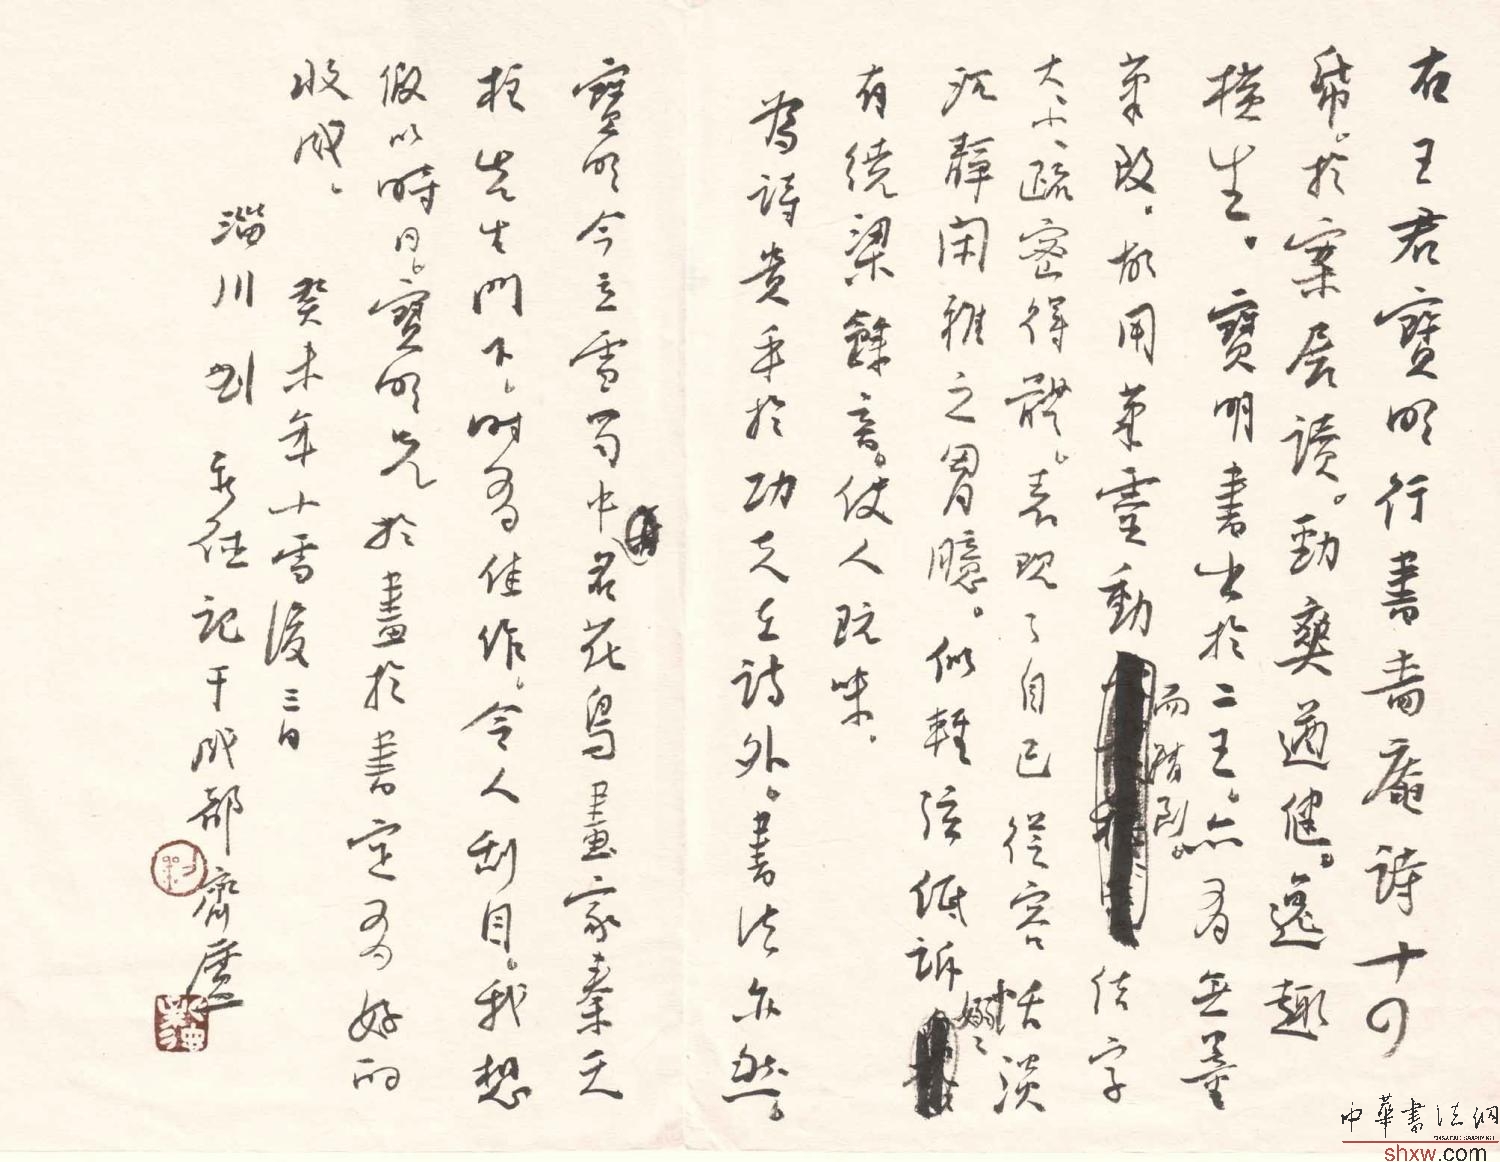 右王君寶明行書嗇庵詩十四
帋。於案居讀。勁爽遒健。逸趣
橫生。寶明書出於二王。亦有吾墨
筆致。故用筆靈動而精到。結字
大小、疏密得體。表現了自己從容恬淡
沉靜閑雅之胃臆。似輕弦低訴嫋嫋
有繞梁餘音。使人玩味。
為詩貴乎於功夫在詩外。書法亦然。
寶明今立雪蜀中名花鳥畫家秦天
柱先生門下。時有佳作。令人刮目。我想
假以時日。寶明兄於畫於書定有好的
收成。
癸未年小雪後三日
淄川 劉 記于成都齊廬
中華書法網
shxw.com